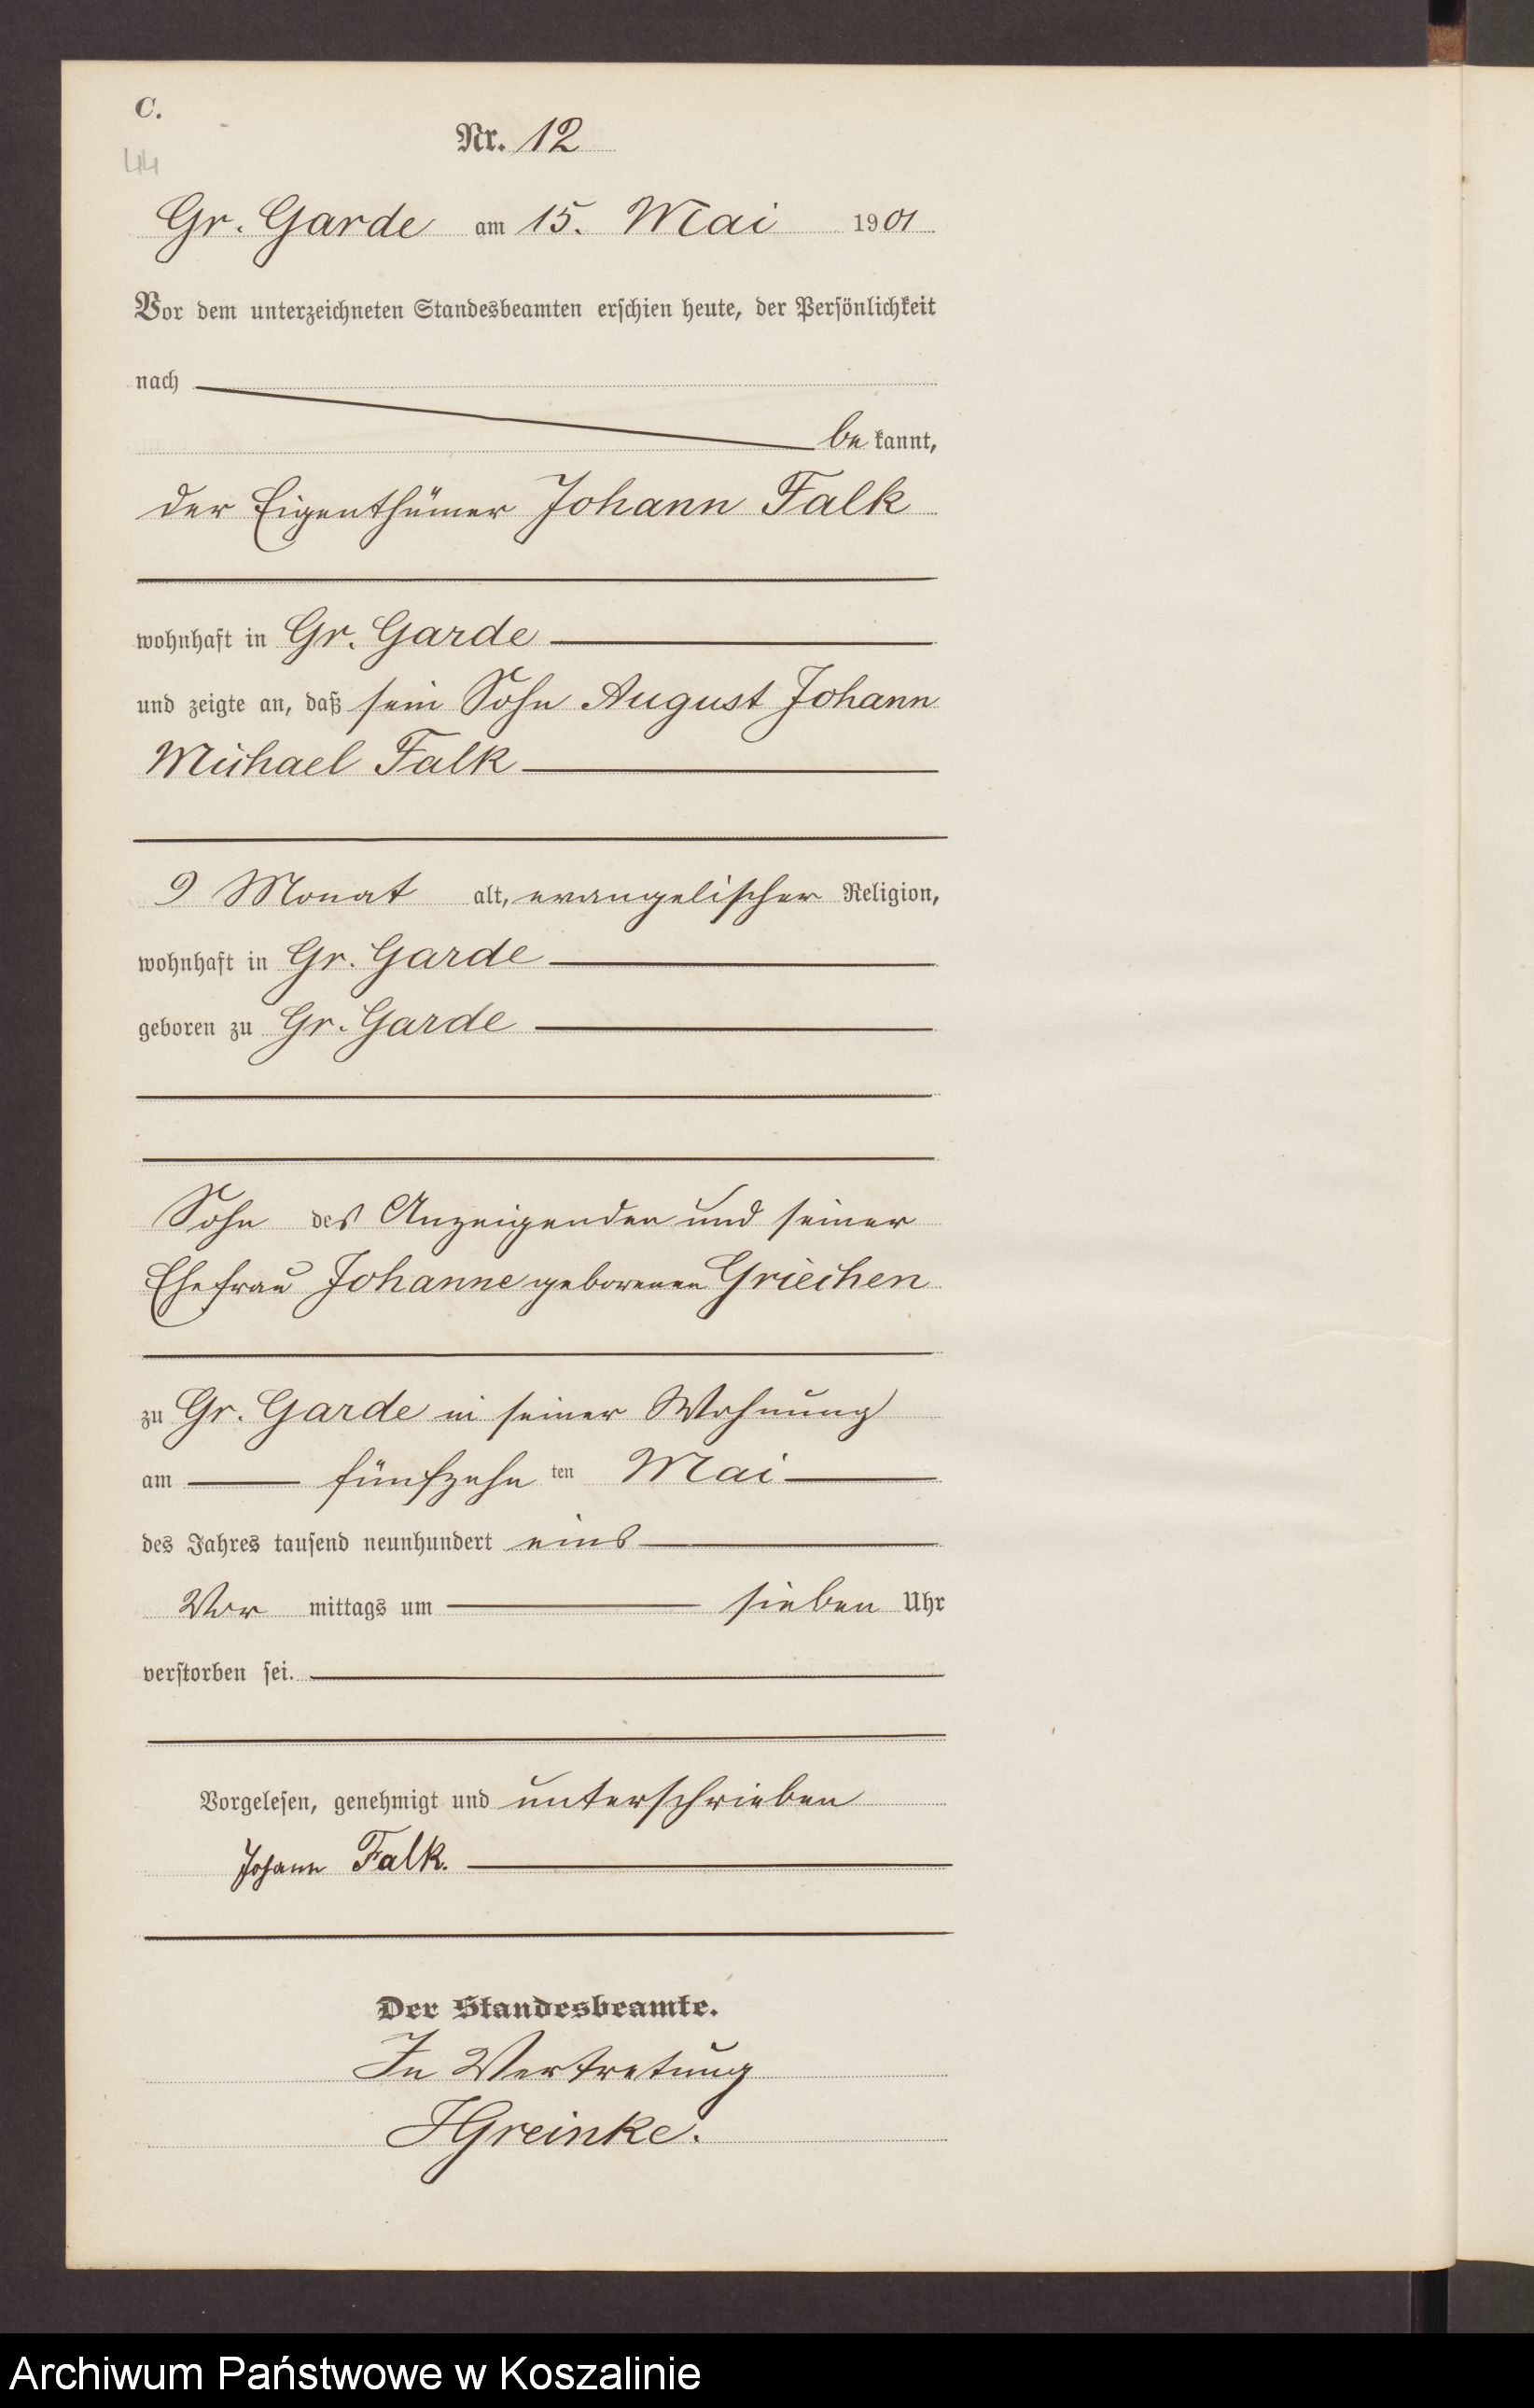 C.
44
Nr. 12
Gr. Garde am 15. Mai 1901
Vor dem unterzeichneten Standesbeamten erschien heute, der Persönlichkeit
nach
bekannt,
der Eigenthümer Johann Falk
wohnhaft in Gr. Garde
und zeigte an, daß sein Sohn August Johann
Michael Falk
9 Monat alt, evangelischer Religion,
wohnhaft in Gr. Garde
geboren zu Gr. Garde
Sohn des Anzeigenden und seiner
Ehefrau Johanne geborenen Griechen
zu Gr. Garde in seiner Wohnung
am fünfzehn ten Mai
des Jahres tausend neunhundert eins
Vor mittags um sieben Uhr
verstorben sei.
Vorgelesen, genehmigt und unterschrieben
Johann Falk.
Der Standesbeamte.
In Vertretung
HGreinke.
Archiwum Państwowe w Koszalinie